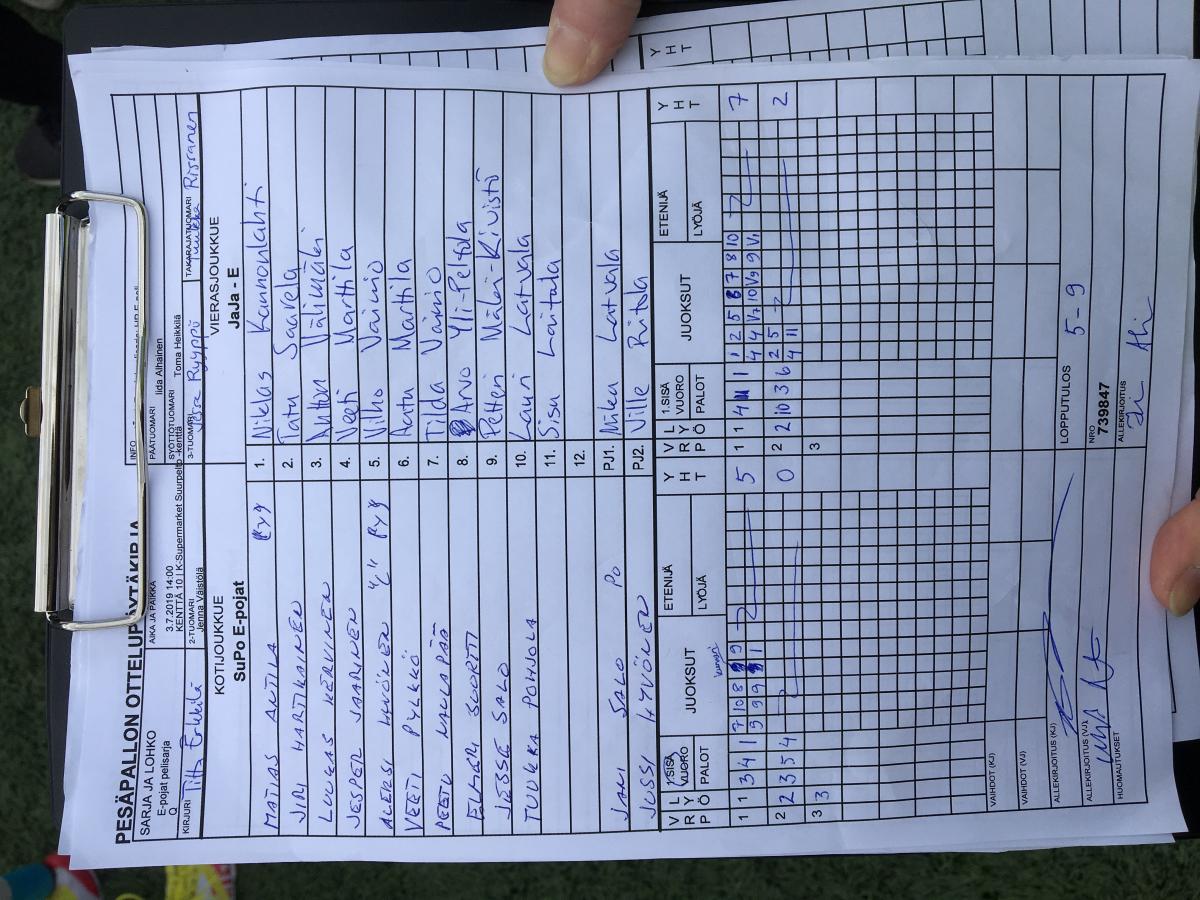 PESÄPALLON OTTELUPÖYTÄKIRJA
SARJA JA LOHKO
E-pojat pelisarja
Q
AIKA JA PAIKKA
3.7.2019 14:00
KENTTÄ 10 | K-Supermarket Suurpelto -kenttä
INFO
PÄÄTUOMARI
Iida Alhainen
SYÖTTÖTUOMARI
Toma Heikkilä
KIRJURI
Titta Erkkilä
2-TUOMARI
Jenna Väistölä
3-TUOMARI
Jesse Ryyppö
TAKARAJATUOMARI
Jukka Rissanen
KOTIJOUKKUE
SuPo E-pojat
VIERASJOUKKUE
JaJa - E
MATIAS ANTILA 1. Niklas Kannonlahti
JIRI HARTIKAINEN 2. Tatu Saarela
LUUKAS KERVINEN 3. Anttoni Välimäki
JESPER JAARINEN 4. Veeti Marttila
ALEKSI HYVÖNEN "C" 5. Vilho Vainio
VEETI PYLKKÖ 6. Aatu Marttila
PEETU NAULAPÄÄ 7. Tilda Vainio
ELMERI SUORTTI 8. Arvo Yli-Peltola
JESSE SALO 9. Petteri Mäki-Kivistö
TUUKKA POHJOLA 10. Lauri Latvala
11. Sisu Laitala
12.
JANI SALO PJ1. Mika Latvala
JUSSI HYVÖNEN PJ2. Ville Ritola
V L
R Y
P Ö
1.SISÄ
VUORO
PALOT
JUOKSUT
ETENIJÄ
LYÖJÄ
Y
H
T
V L
R Y
P Ö
1.SISÄ
VUORO
PALOT
JUOKSUT
ETENIJÄ
LYÖJÄ
Y
H
T
kunnari
1 1 3 4 1 7 10 8 9 5
2 2 3 5 4 0
3 3
1 1 4 1 1 2 5 8 7 8 10 7
4 4 V2 10 V9 9 V1
2 2 10 3 6 2 5 2
4 11
3
VAIHDOT (KJ)
VAIHDOT (VJ)
ALLEKIRJOITUS (KJ)
LOPPUTULOS 5 - 9
ALLEKIRJOITUS (VJ)
NRO
739847
HUOMAUTUKSET
ALLEKIRJOITUS